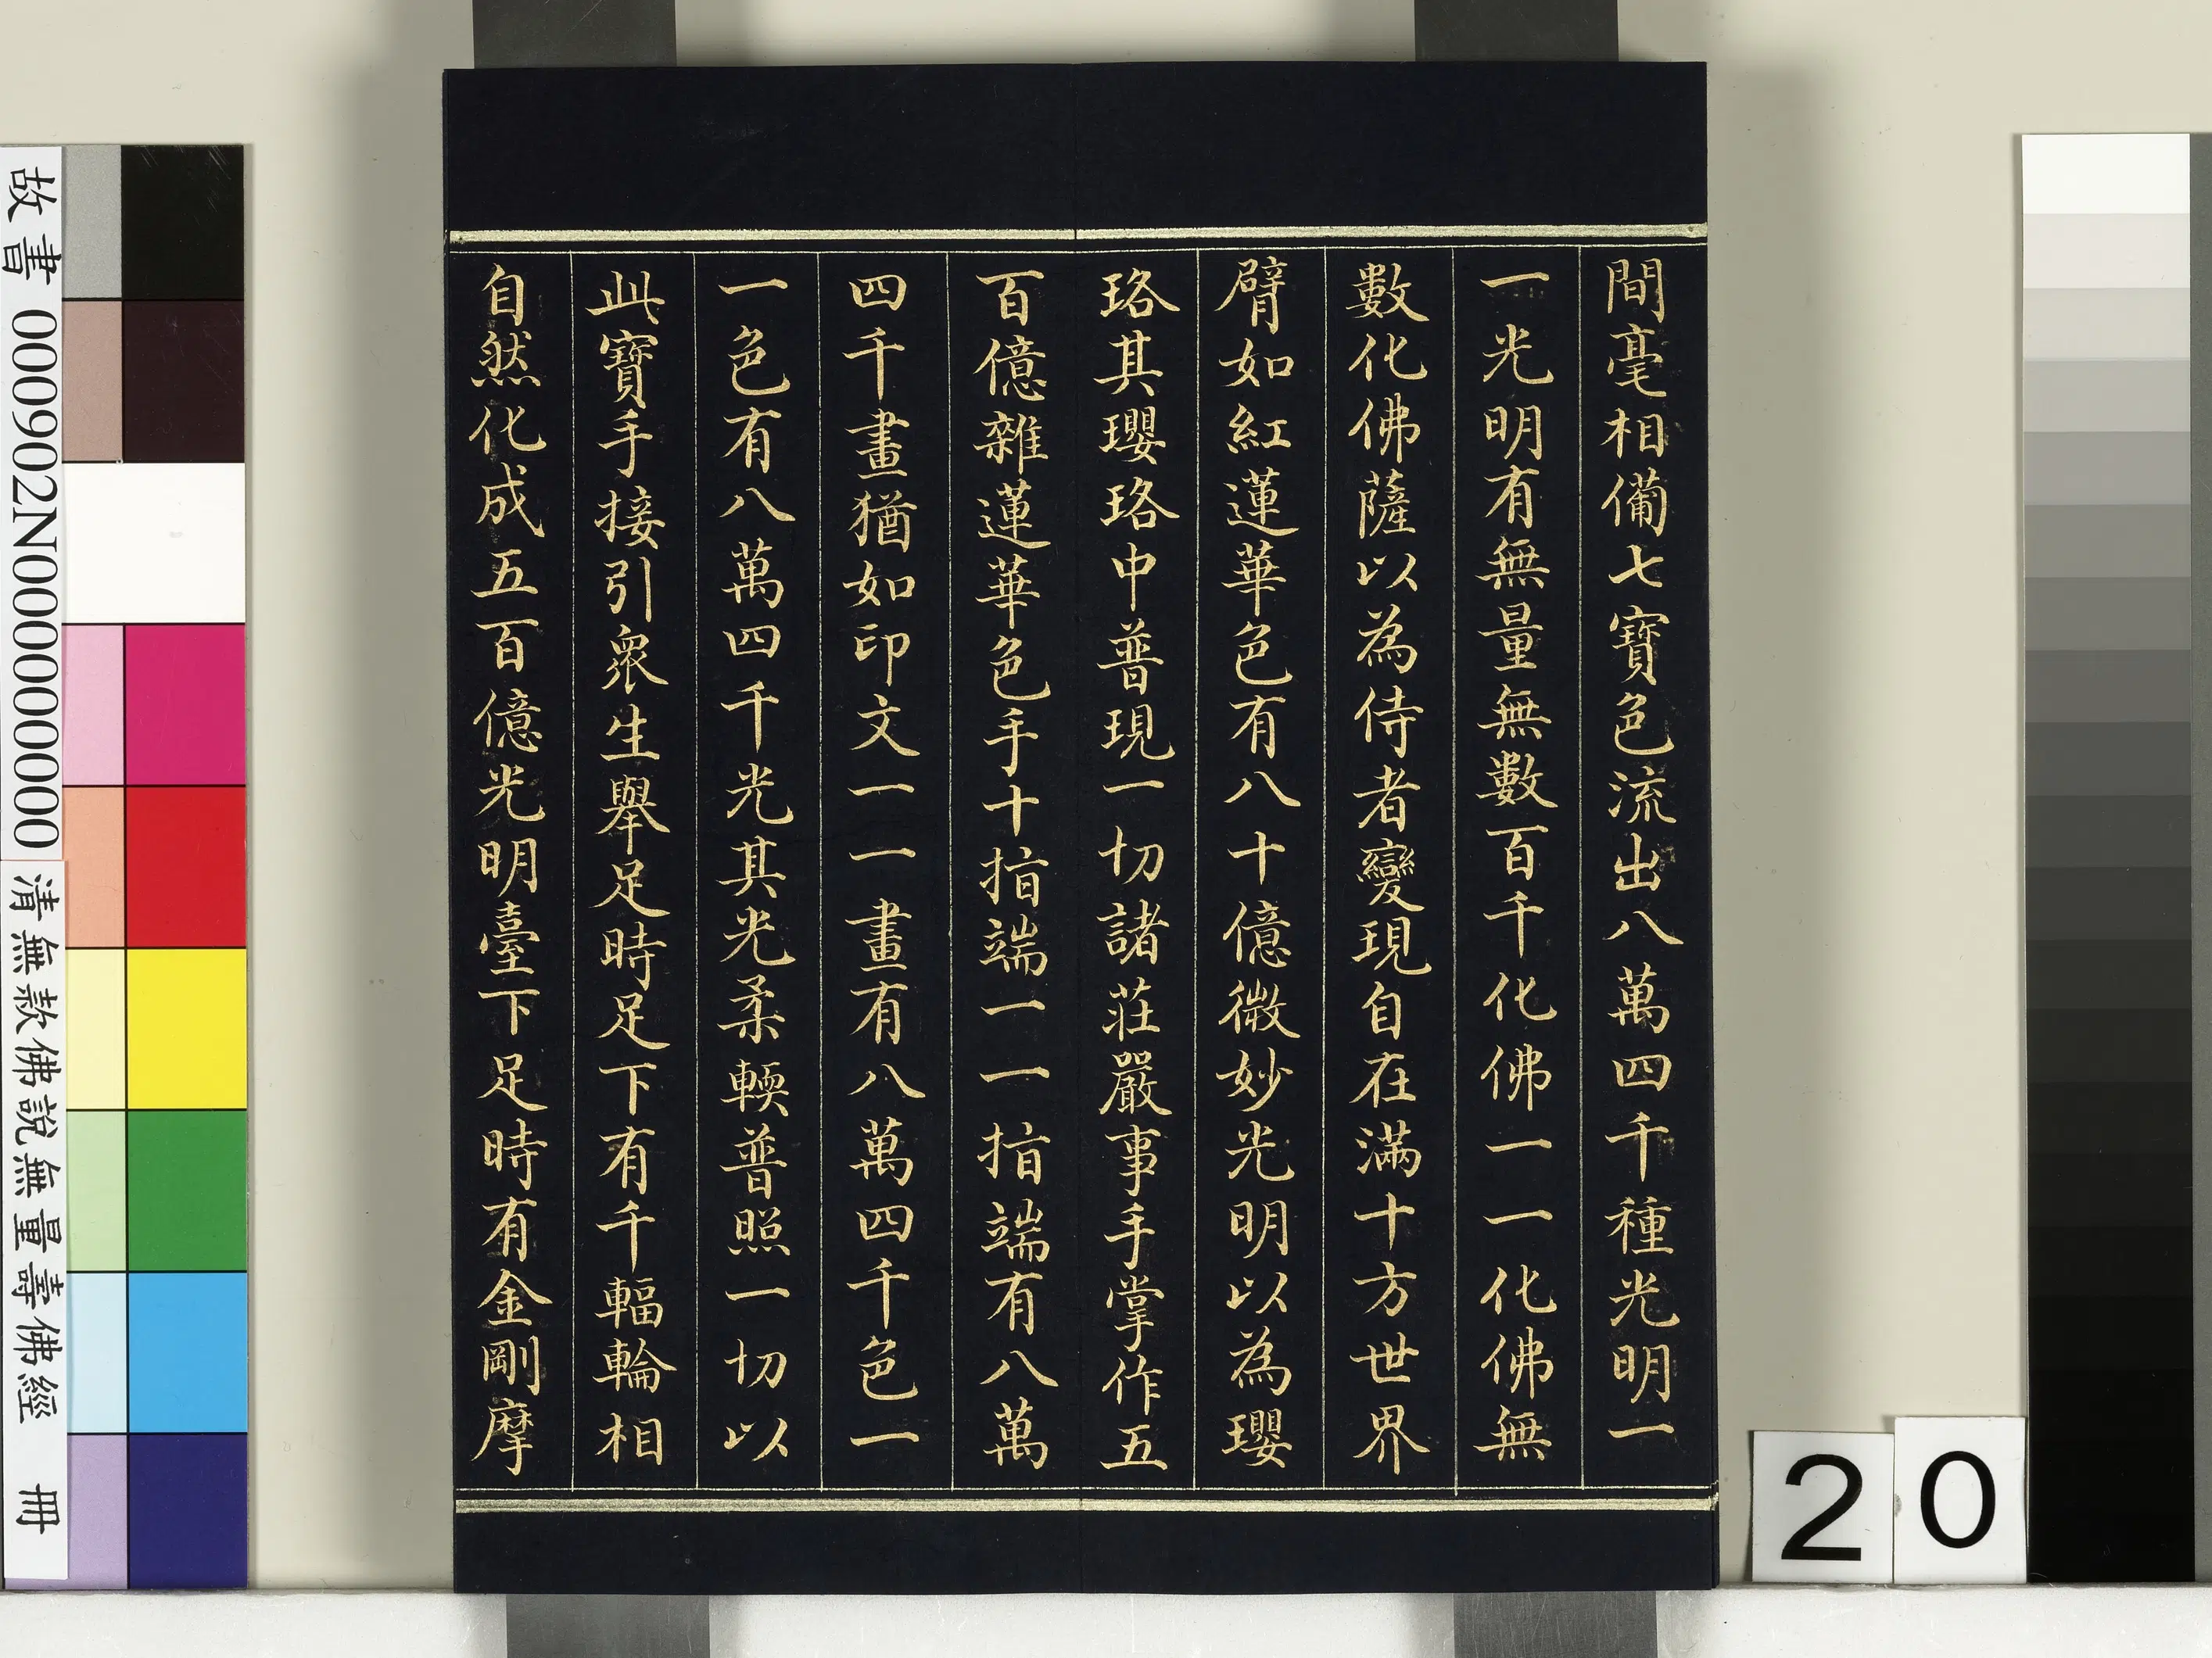 間毫相備七寶色流出八萬四千種光明一
一光明有無量無數百千化佛一一化佛無
數化佛薩以為侍者變現自在滿十方世界
臂如紅蓮華色有八十億微妙光明以為瓔
珞其瓔珞中普現一切諸莊嚴事手掌作五
百億雜蓮華色手十指端一一指端有八萬
四千畫猶如印文一一畫有八萬四千色一
一色有八萬四千光其光柔輭普照一切以
此寶手接引眾生舉足時足下有千輻輪相
自然化成五百億光明臺下足時有金剛摩
故書 000902N000000000
清無款佛說無量壽佛經 冊
20